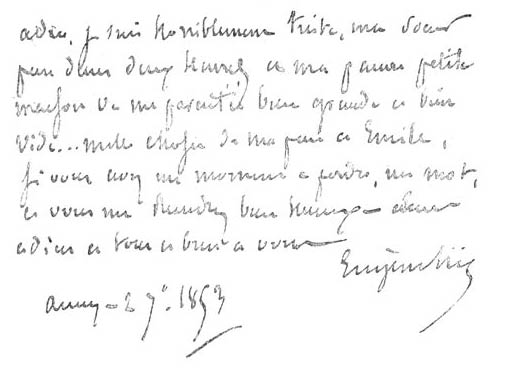 adieu, je suis horriblement triste, ma soeur
part dans deux heures et ma pauvre petite
maison va me paraître bien grande et bien
vide... mille choses de ma part à Emile,
si vous avez un moment à perdre, un mot,
et vous me rendrez bien heureux
adieu et tout et bien à vous
Eugène Süe
Annecy - 27 1853